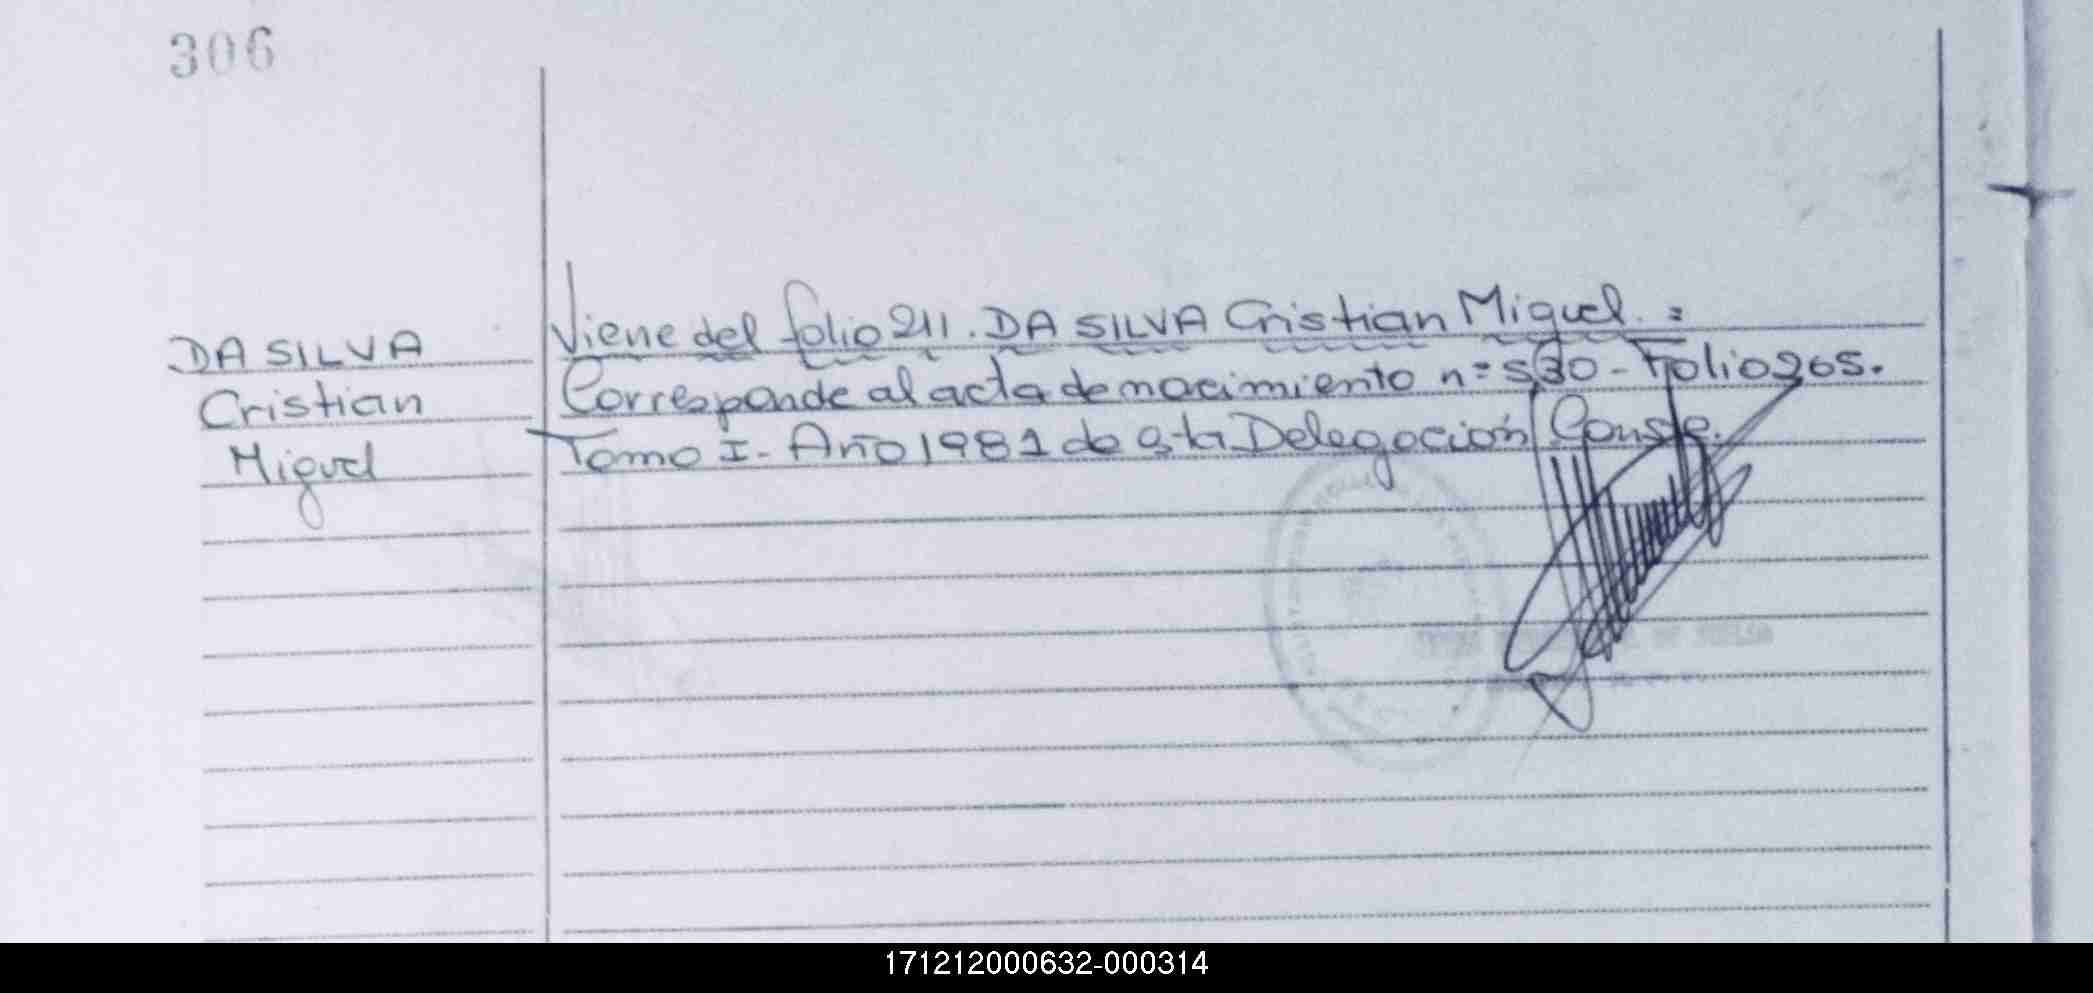 306
DA SILVA
Cristian
Miguel
Viene del folio 211. DA SILVA Cristian Miguel. =
Corresponde al acta de nacimiento n= 530 - Folio 265.
Tomo I - Año 1981 de esta Delegación Conste.
171212000632-000314